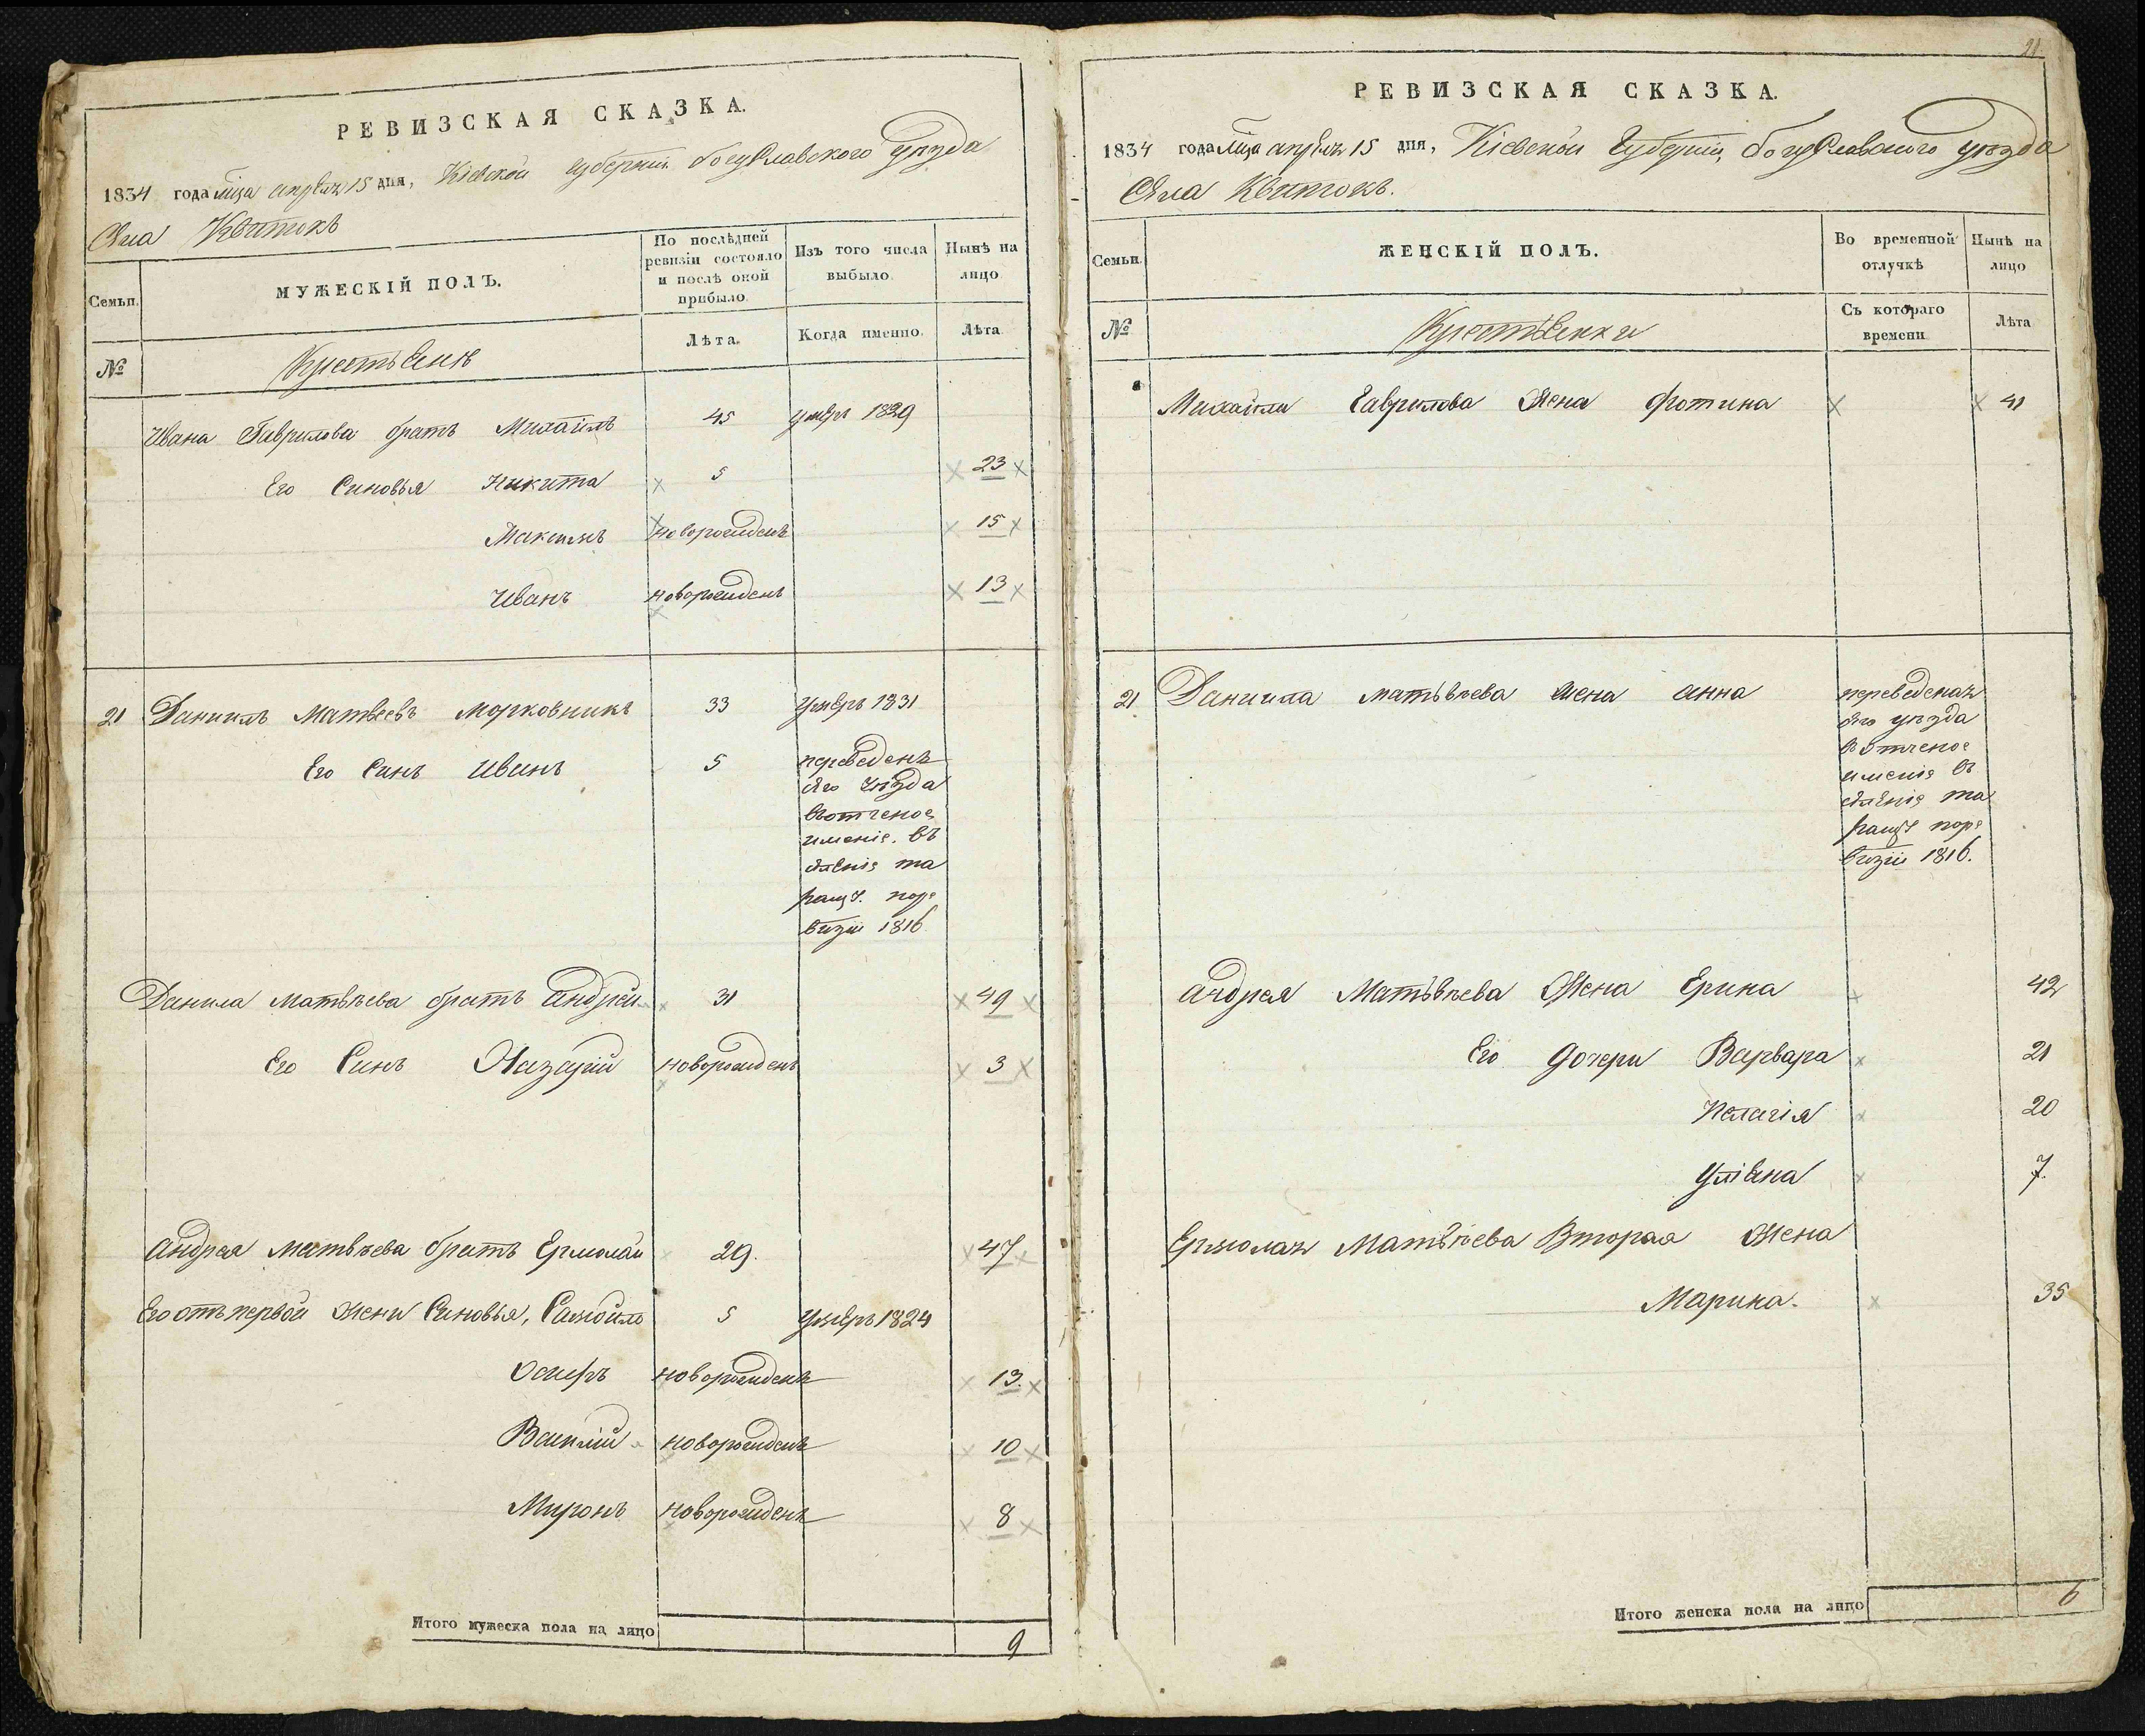 РЕВИЗСКАЯ СКАЗКА.
1834 года мца апреля 15 дня, Кіевской Губерніи богуславского уезда
Села Квитокъ
Семьи.
МУЖЕСКІЙ ПОЛЪ.
По послѣдней ревизіи состояло и послѣ оной прибыло
Изъ того числа выбыло.
Нынѣ на лицо
№
Крестьяне
Лѣта.
Когда именно.
Лѣта
Ивана Гаврилова братъ Михайлъ 45 умеръ 1829
Его Синовья Никита 5 23
Максимъ новорожденъ 15
Иванъ новорожденъ 13
21 Даниилъ Матвеевъ Морковникъ 33 умеръ 1831
Его Синъ Иванъ 5 переведенъ
уезда
вотченое
имение. въ
1816
Данила Матвъева братъ Андрей 31 49
Его Синъ Назарій новорожденъ 3
Андрея Матвъева братъ Ермолай 29. 47
Его отъ первой жени Синовья, Самойло 5 умеръ 1824
Осипъ новорожденъ 13.
Василій новорожденъ 10
Миронъ новорожденъ 8
Итого мужеска пола на лицо 9
21
РЕВИЗСКАЯ СКАЗКА.
1834 года мца апреля 15 дня, Кіевской Губерніи, богуславского уезда
Села Квитокъ.
Семьи.
ЖЕНСКІЙ ПОЛЪ.
Во временной отлучкѣ
Нынѣ на лицо
№
Крестьянки
Съ котораго времени
Лѣта
Михайла Гаврилова Жена Фотина 41
21 Даниила матьвъева жена анна переведена
уезда
вотченое
имение въ
1816.
Андрея Матьвъева Жена Ерина 42
Его дочери Варвара 21
Пелагія 20
Уліяна 7.
Ермолая Матьвъева Вторая Жена
Марина. 35
Итого женска пола на лицо 6